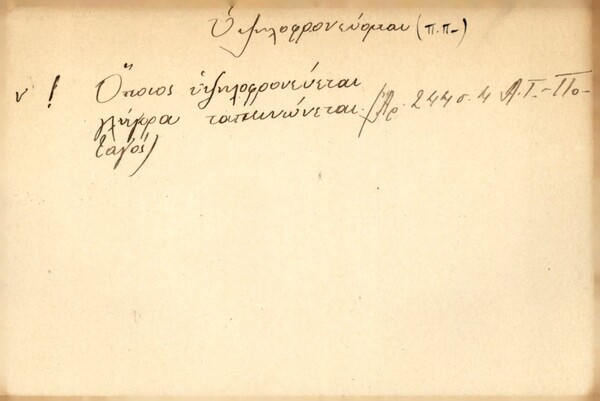 Ὑψηλοφρονεύομαι (π.π.-)
ν ! Ὅποιος ὑψηλοφρονεύεται
γλήγορα ταπεινώνεται. (Ἀρ. 244 σ. 4 Α.Γ.-Πο-
ταγός)